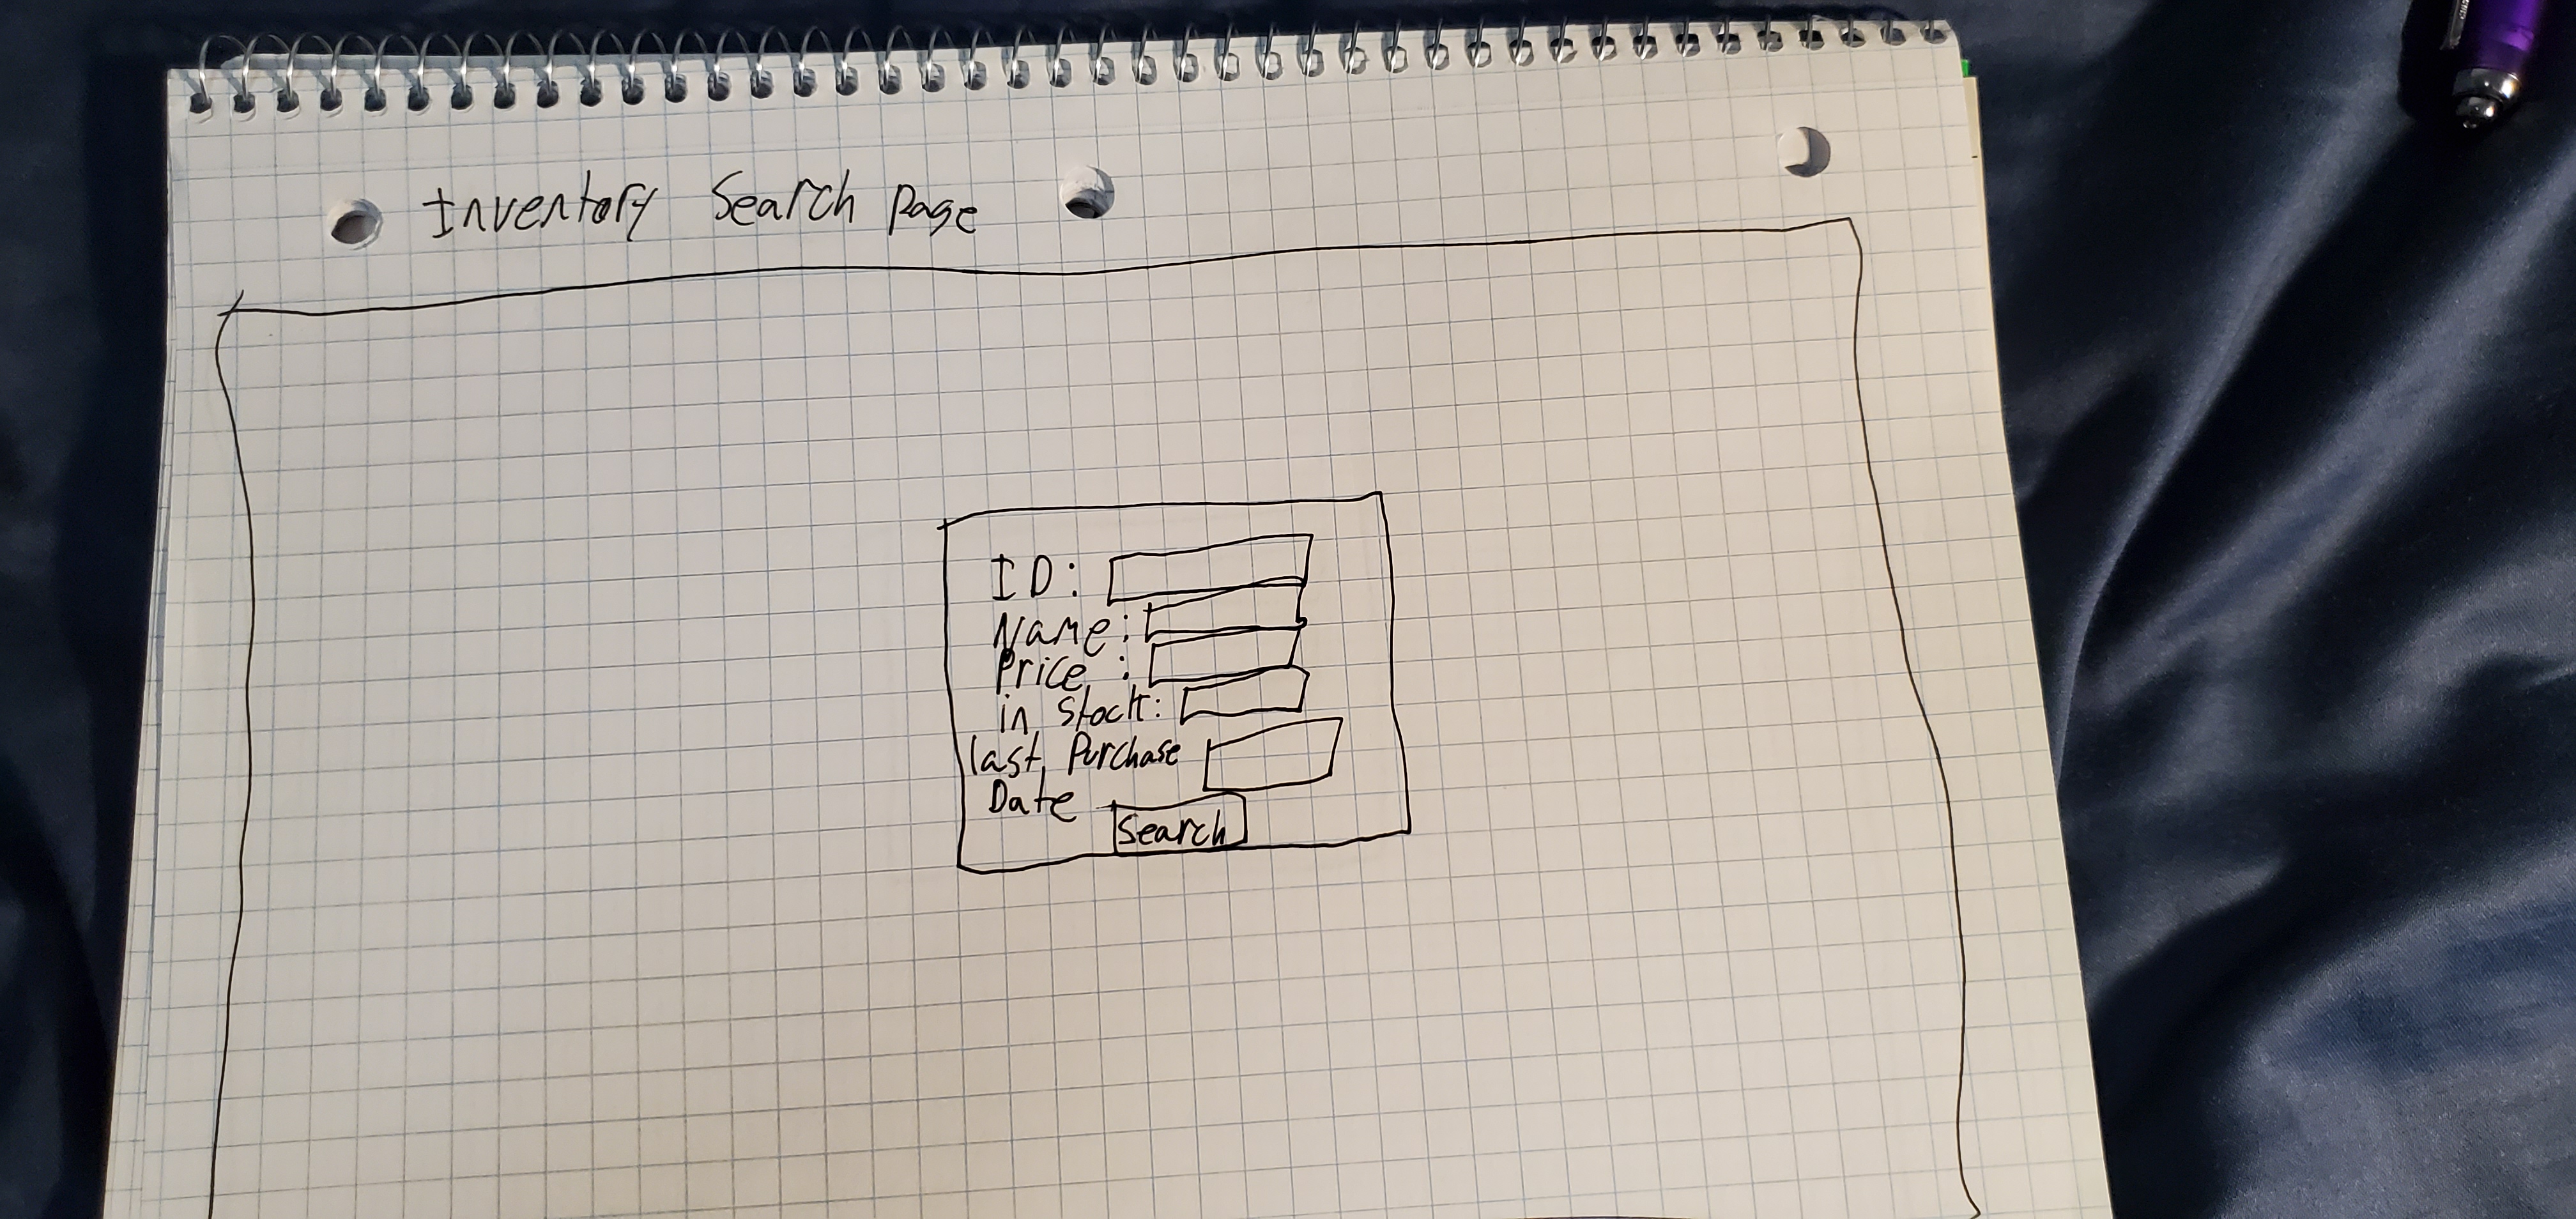 Inventory Search Page
ID:
Name:
Price :
in Stock:
last Purchase
Date
Search